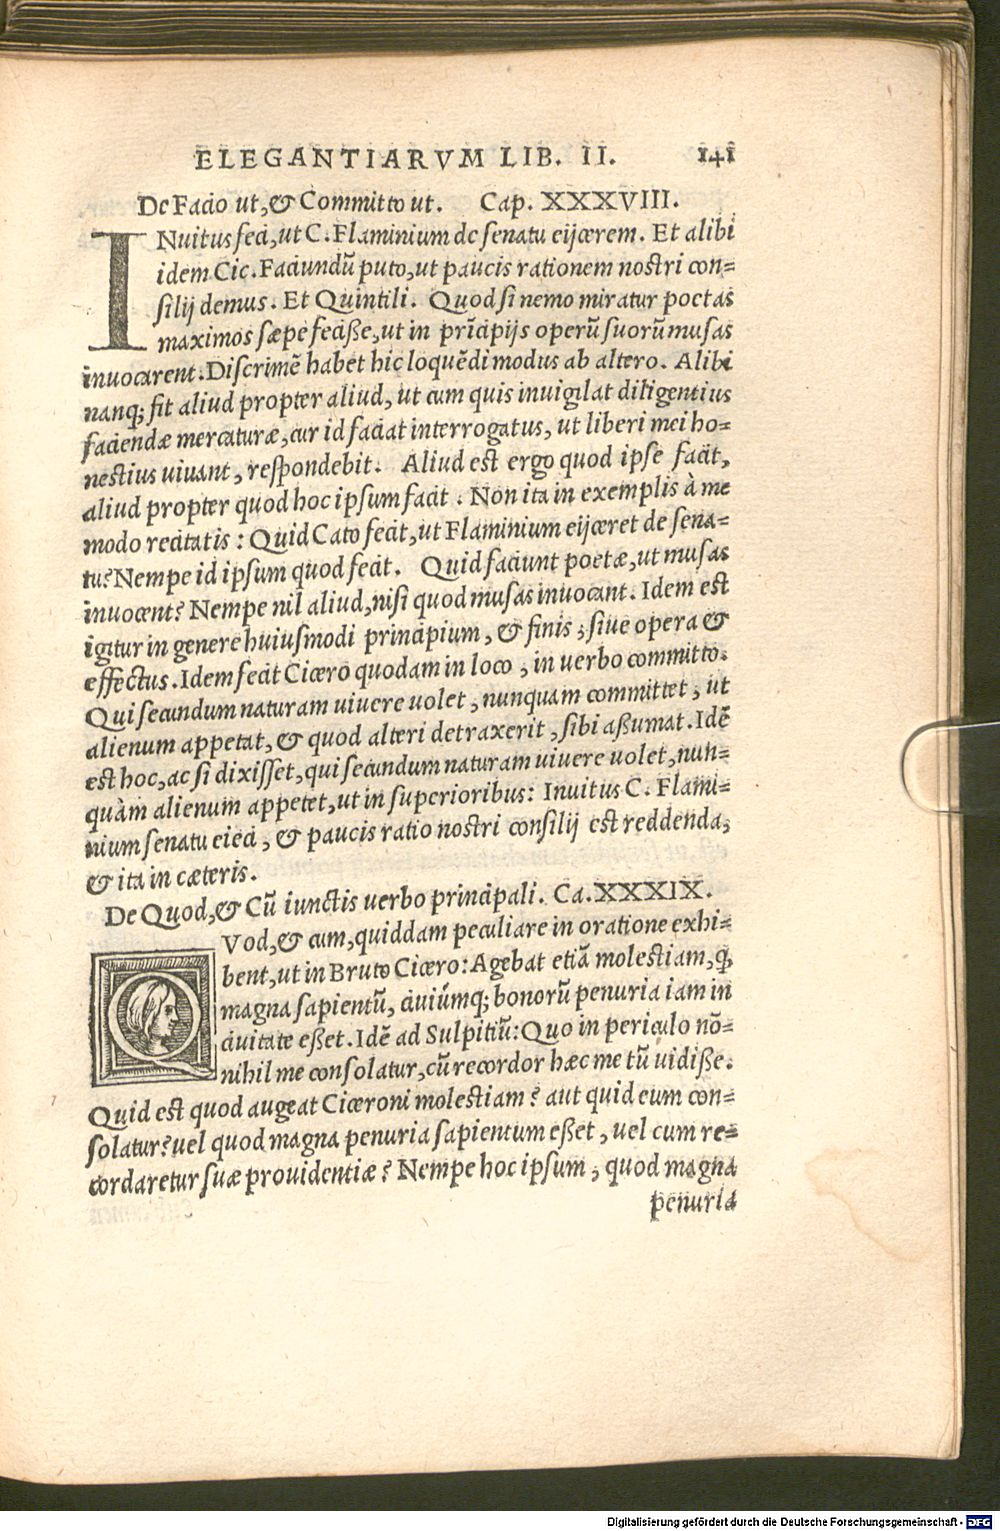 ELEGANTIARVM LIB. II. 141
De Facio ut, & Committo ut. Cap. XXXVIII.
INuitus feci, ut C. Flaminium de senatu eijcerem. Et alibi
idem Cic. Faciundũ puto, ut paucis rationem nostri con=
silij demus. Et Quintili. Quod si nemo miratur poetas
maximos sæpe feciße, ut in prĩcipijs operũ suorũ musas
inuocarent. Discrimẽ habet hic loquẽdi modus ab altero. Alibi
nanq; fit aliud propter aliud, ut cum quis inuigilat diligentius
faciendæ mercaturæ, cur id faciat interrogatus, ut liberi mei ho=
nestius viuant, respondebit. Aliud est ergo quod ipse facit,
aliud propter quod hoc ipsum facit. Non ita in exemplis à me
modo recitatis: Quid Cato fecit, ut Flaminium eijceret de sena=
tu? Nempe id ipsum quod fecit. Quid faciunt poetæ, ut musas
inuocent? Nempe nil aliud, nisi quod musas inuocant. Idem est
igitur in genere huiusmodi principium, & finis, siue opera &
effectus. Idem fecit Cicero quodam in loco, in uerbo committo.
Qui secundum naturam uiuere uolet, nunquam committet, ut
alienum appetat, & quod alteri detraxerit, sibi aßumat. Idẽ
est hoc, ac si dixisset, qui secundum naturam uiuere uolet, nun=
quàm alienum appetet, ut in superioribus: Inuitus C. Flami=
nium senatu eieci, & paucis ratio nostri consilij est reddenda,
& ita in cæteris.
De Quod, & Cũ iunctis uerbo principali. Ca. XXXIX.
QVod, & cum, quiddam peculiare in oratione exhi=
bent, ut in Bruto Cicero: Agebat etiã molestiam, q̃
magna sapientũ, ciuiũmq; bonorũ penuria iam in
ciuitate eßet. Idẽ ad Sulpitiũ: Quo in periculo nõ=
nihil me consolatur, cũ recordor hæc me tũ uidiße.
Quid est quod augeat Ciceroni molestiam? aut quid eum con=
solatur? uel quod magna penuria sapientum eßet, uel cum re=
cordaretur suæ prouidentiæ? Nempe hoc ipsum, quod magna
penuria
Digitalisierung gefördert durch die Deutsche Forschungsgemeinschaft - DFG